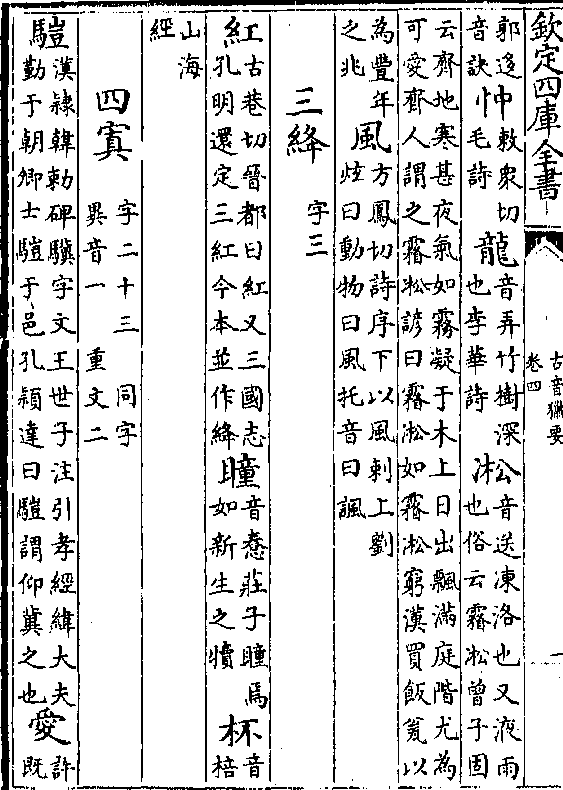 欽定四庫全書
古音獵要
卷四
一
郭逡
音訣
忡
敕衆切
毛詩
龍
音弄竹樹深
也李華詩
淞
音送凍洛也又液雨
也俗云霧淞曾子固
云齊地寒甚夜氣如霧凝于木上日出飄滿庭階尤為
可愛齊人謂之霧淞諺曰霧淞如霧淞窮漢買飯甕以
為豐年
之兆
風
方鳳切詩序下以風刺上劉
炫曰動物曰風托音曰諷
三絳
字三
紅
古巷切晉都曰紅又三國志
孔明還定三紅今本並作絳
瞳
音惷莊子瞳焉
如新生之犢
杯
音
棓
山海
經
四寘
字二十三
異音一
同字
重文二
騹
漢隸韓勅碑驥字文王世子注引孝經緯大夫
勤于朝卿士騹于邑孔穎達曰騹謂仰冀之也
愛
許
既